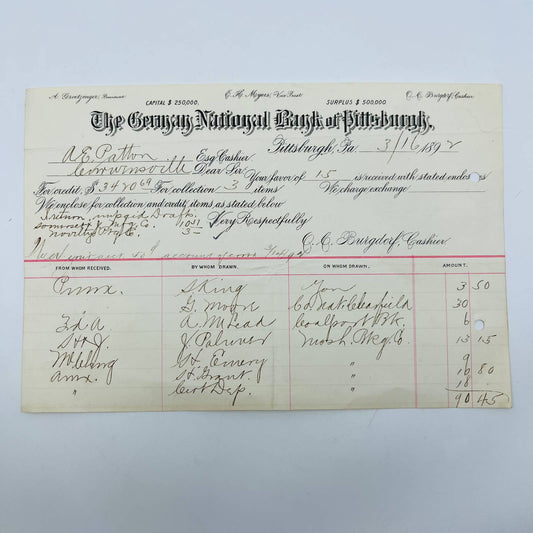 A. Groetzinger, President E. H. Myers, Vice Prest O. C. Burgdorf, Cashier
CAPITAL $ 250,000. SURPLUS $ 500,000.
The German National Bank of Pittsburgh.
Pittsburgh, Pa 3/16 1892
A E Patton Esq Cashier
Curwensville Dear Sir Your favor of 15 is received with stated enclosures
For credit, $ 3470 69 For collection 3 items We charge exchange
We enclose for collection and credit, items as stated below
Return unpaid Drafts
Somerset Mfg. Co. 10 51 Very Respectfully
Novelty Mfg Co. 3 -
O. C. Burgdorf, Cashier
We account
FROM WHOM RECEIVED. BY WHOM DRAWN. ON WHOM DRAWN. AMOUNT.
S King You 3 50
G. Moore Co. Nat Clearfield 30
A. McLead Coalport Bk. 6
Mosh. Bkg. Co. 13 15
G H Emery " 9
S H Grant " 10 80
" " 18 -
90 45